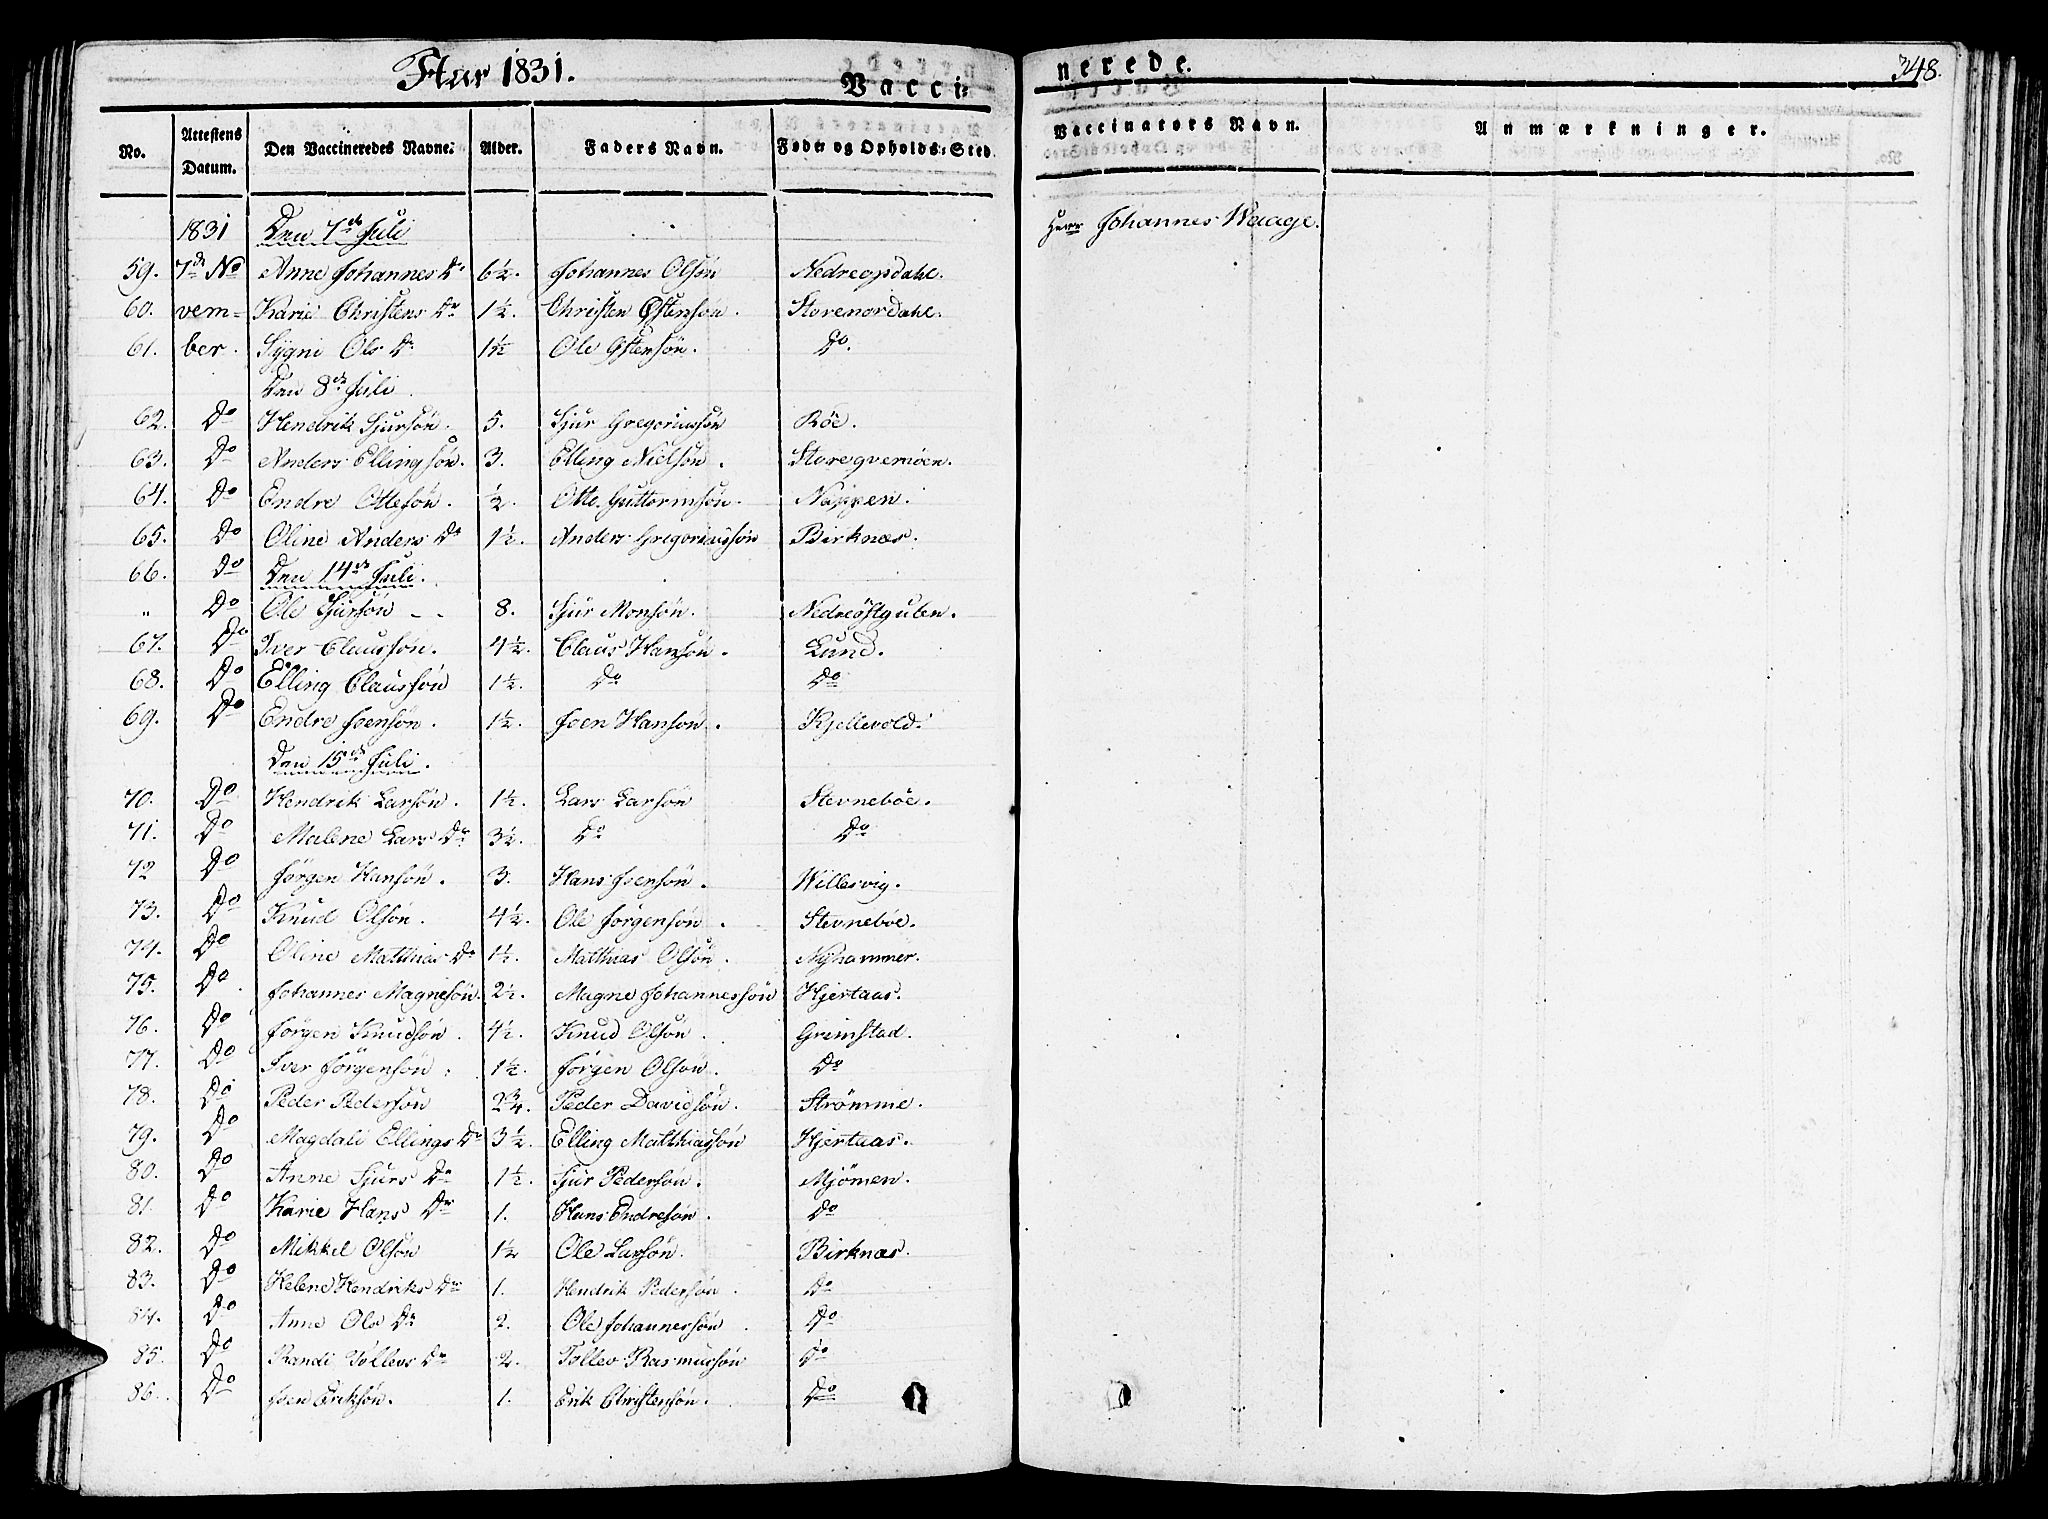 Aar 1831.
Vacci-
nerede.
348.
No. Attestens Datum. Den Vaccineredes Navne. Alder. Faders Navn. Føde- og Opholds-Sted. Vaccinators Navn. Anmærkninger.
1831 Den 7de Juli Herr Johannes Waage.
59. 7de No Anne Johannes Dr 6½. Johannes Olsøn Nedreopdahl.
60. vem= Karie Christens Dr 1½. Christen Østensøn. Storenordahl.
61. ber. Sygni Ols Dr 1½ Ole Østensøn. Do.
Den 8de Juli
62. Do Hendrik Sjursøn. 5. Sjur Gregoriussøn Röe.
63. Do Anders Ellingsøn. 3. Elling Nielsøn. Storegvernöen.
64. Do Endre Ottesøn. ½. Otte Guttormsøn. Nappen.
65. Do Oline Anders Dr 1½. Anders Gregoriussøn Birknæs.
66. Do Den 14de Juli.
" Do Ole Sjursøn - - 8. Sjur Monsøn. Nedreöstgulen.
67. Do Iver Claussøn. 4½. Claus Hansøn. Lund.
68. Do Elling Claussøn 1½. Do Do
69. Do Endre Joensøn. 1½. Joen Hansøn. Kjellevold.
Den 15de Juli.
70. Do Hendrik Larsøn. 1½. Lars Larsøn Stevneböe.
71. Do Malene Lars Dr 3½. Do Do
72 Do Jørgen Hansøn. 3. Hans Joensøn. Willesvig.
73. Do Knud Olsøn. 4½. Ole Jørgensøn. Stevneböe.
74. Do Oline Matthias Dr 1½. Matthias Olsøn. Nÿhammer.
75. Do. Johannes Magnesøn. 2½. Magne Johannessøn Hjertaas.
76. Do Jørgen Knudsøn. 4½. Knud Olsøn. Grimstad.
77. Do Iver Jørgensøn. 1½. Jørgen Olsøn. Do
78. Do Peder Pedersøn 2¾. Peder Davidsøn. Strömme.
79. Do Magdali Ellings Dr 3½. Elling Matthiassøn Hjertaas.
80. Do Anne Sjurs Dr 1½. Sjur Pedersøn. Mjömen.
81. Do Karie Hans Dr 1. Hans Endresøn. Do
82. Do Mikkel Olsøn 1½ Ole Larsøn. Birknæs.
83. Do Helene Hendriks Dr 1. Hendrik Pedersøn. Do
84. Do Anne Ols Dr 2. Ole Johannessøn. Do
85. Do Randi Tollevs Dr 2. Tollev Rasmussøn Do
86. Do Joen Eriksøn. 1. Erik Christensøn. Do